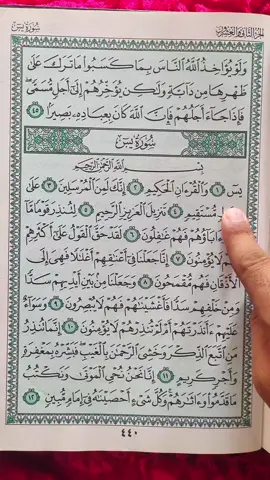 سُورَةُ يسٓ
الجزء الثاني والعشرون
وَلَوْ يُؤَاخِذُ ٱللَّهُ ٱلنَّاسَ بِمَا كَسَبُوا۟ مَا تَرَكَ عَلَىٰ
ظَهْرِهَا مِن دَآبَّةٍ وَلَٰكِن يُؤَخِّرُهُمْ إِلَىٰٓ أَجَلٍ مُّسَمًّى
فَإِذَا جَآءَ أَجَلُهُمْ فَإِنَّ ٱللَّهَ كَانَ بِعِبَادِهِۦ بَصِيرًۢا ٤٥
سُورَةُ يسٓ
بِسْمِ ٱللَّهِ ٱلرَّحْمَٰنِ ٱلرَّحِيمِ
يسٓ ١ وَٱلْقُرْءَانِ ٱلْحَكِيمِ ٢ إِنَّكَ لَمِنَ ٱلْمُرْسَلِينَ ٣ عَلَىٰ
مُّسْتَقِيمٍ ٤ تَنزِيلَ ٱلْعَزِيزِ ٱلرَّحِيمِ ٥ لِتُنذِرَ قَوْمًا مَّآ
ءَابَآؤُهُمْ فَهُمْ غَٰفِلُونَ ٦ لَقَدْ حَقَّ ٱلْقَوْلُ عَلَىٰٓ أَكْثَرِهِمْ
لَا يُؤْمِنُونَ ٧ إِنَّا جَعَلْنَا فِىٓ أَعْنَٰقِهِمْ أَغْلَٰلًا فَهِىَ إِلَى
ٱلْأَذْقَانِ فَهُم مُّقْمَحُونَ ٨ وَجَعَلْنَا مِنۢ بَيْنِ أَيْدِيهِمْ سَدًّا
وَمِنْ خَلْفِهِمْ سَدًّا فَأَغْشَيْنَٰهُمْ فَهُمْ لَا يُبْصِرُونَ ٩ وَسَوَآءٌ
عَلَيْهِمْ ءَأَنذَرْتَهُمْ أَمْ لَمْ تُنذِرْهُمْ لَا يُؤْمِنُونَ ١٠ إِنَّمَا تُنذِرُ
مَنِ ٱتَّبَعَ ٱلذِّكْرَ وَخَشِىَ ٱلرَّحْمَٰنَ بِٱلْغَيْبِ فَبَشِّرْهُ بِمَغْفِرَةٍ
وَأَجْرٍ كَرِيمٍ ١١ إِنَّا نَحْنُ نُحْىِ ٱلْمَوْتَىٰ وَنَكْتُبُ
مَا قَدَّمُوا۟ وَءَاثَٰرَهُمْ وَكُلَّ شَىْءٍ أَحْصَيْنَٰهُ فِىٓ إِمَامٍ مُّبِينٍ ١٢
٤٤٠